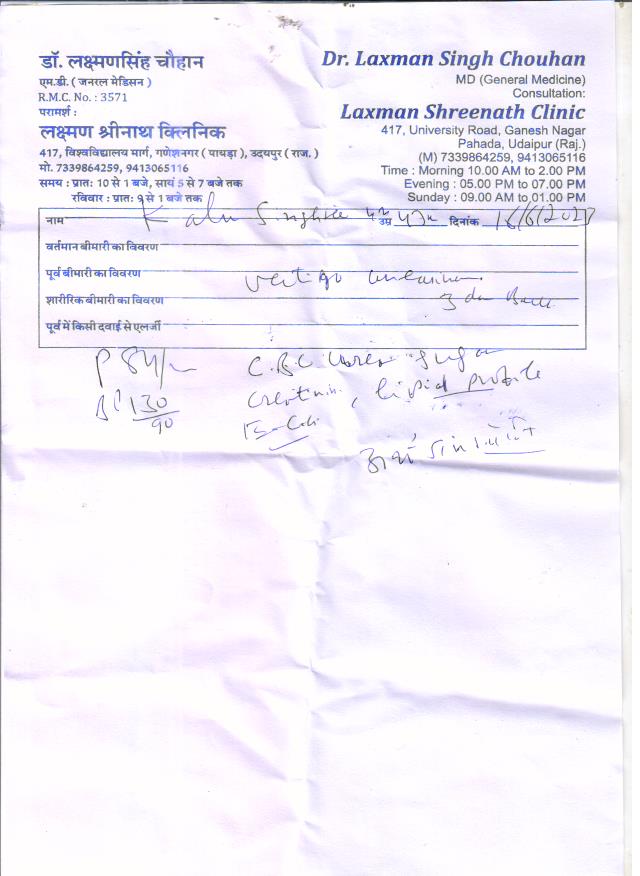 डॉ. लक्ष्मणसिंह चौहान
एम.डी. ( जनरल मेडिसन )
R.M.C. No. : 3571
परामर्श :
लक्ष्मण श्रीनाथ क्लिनिक
417, विश्वविद्यालय मार्ग, गणेशनगर ( पायड़ा ), उदयपुर ( राज. )
मो. 7339864259, 9413065116
समय : प्रातः 10 से 1 बजे, सायं 5 से 7 बजे तक
रविवार : प्रातः 9 से 1 बजे तक
Dr. Laxman Singh Chouhan
MD (General Medicine)
Consultation:
Laxman Shreenath Clinic
417, University Road, Ganesh Nagar
Pahada, Udaipur (Raj.)
(M) 7339864259, 9413065116
Time : Morning 10.00 AM to 2.00 PM
Evening : 05.00 PM to 07.00 PM
Sunday : 09.00 AM to 01.00 PM
नाम Kalu उम्र दिनांक
वर्तमान बीमारी का विवरण
पूर्व बीमारी का विवरण Vertigo
शारीरिक बीमारी का विवरण 3
पूर्व में किसी दवाई से एलर्जी
P 84/
C.B.C
BP 130/90
lipid profile